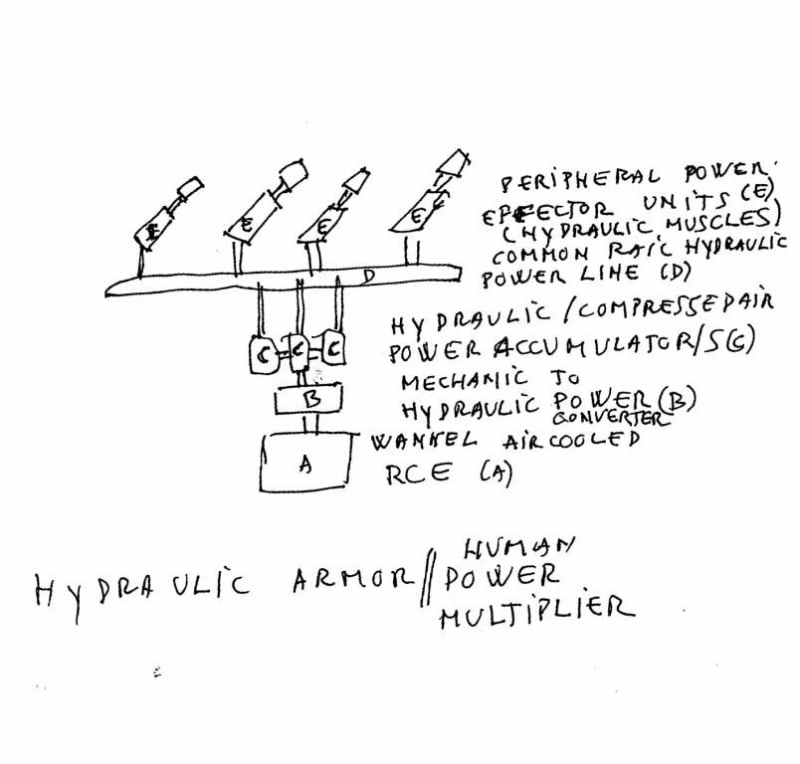 PERIPHERAL POWER
EFFECTOR UNITS (E)
(HYDRAULIC MUSCLES)
COMMON RAIL HYDRAULIC
POWER LINE (D)
E
E
E
E
D
HYDRAULIC/COMPRESSED AIR
POWER ACCUMULATOR/S (C)
C
C
C
MECHANIC TO
HYDRAULIC POWER (B)
CONVERTER
B
WANKEL AIR COOLED
RCE (A)
A
HYDRAULIC ARMOR // HUMAN
POWER
MULTIPLIER